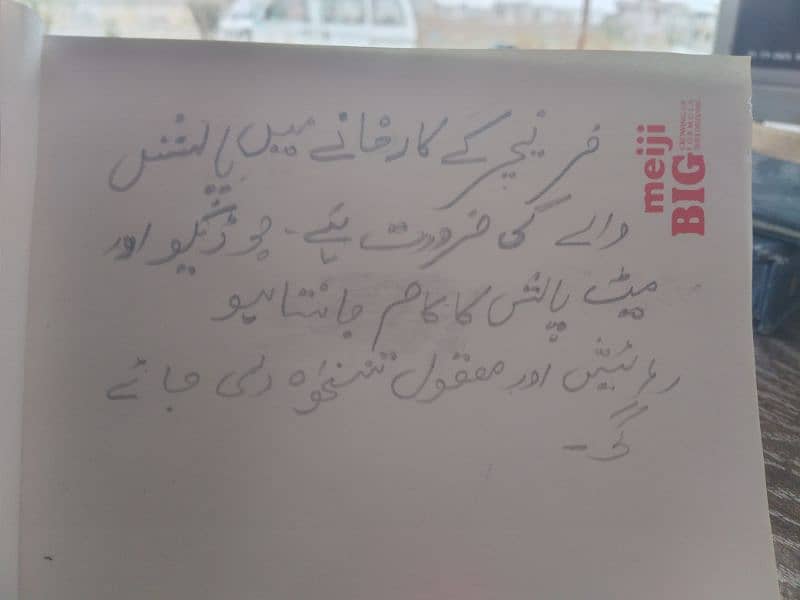 فرنیچر کے کارخانے میں پالشش
والے کی ضرورت ہے۔ جو ڈیکو اور
میٹ پالش کا کام جانتا ہو
رہائیش اور معقول تنخواہ دی جائے
گی۔
meiji
BIG
GROWING UP
FORMULA